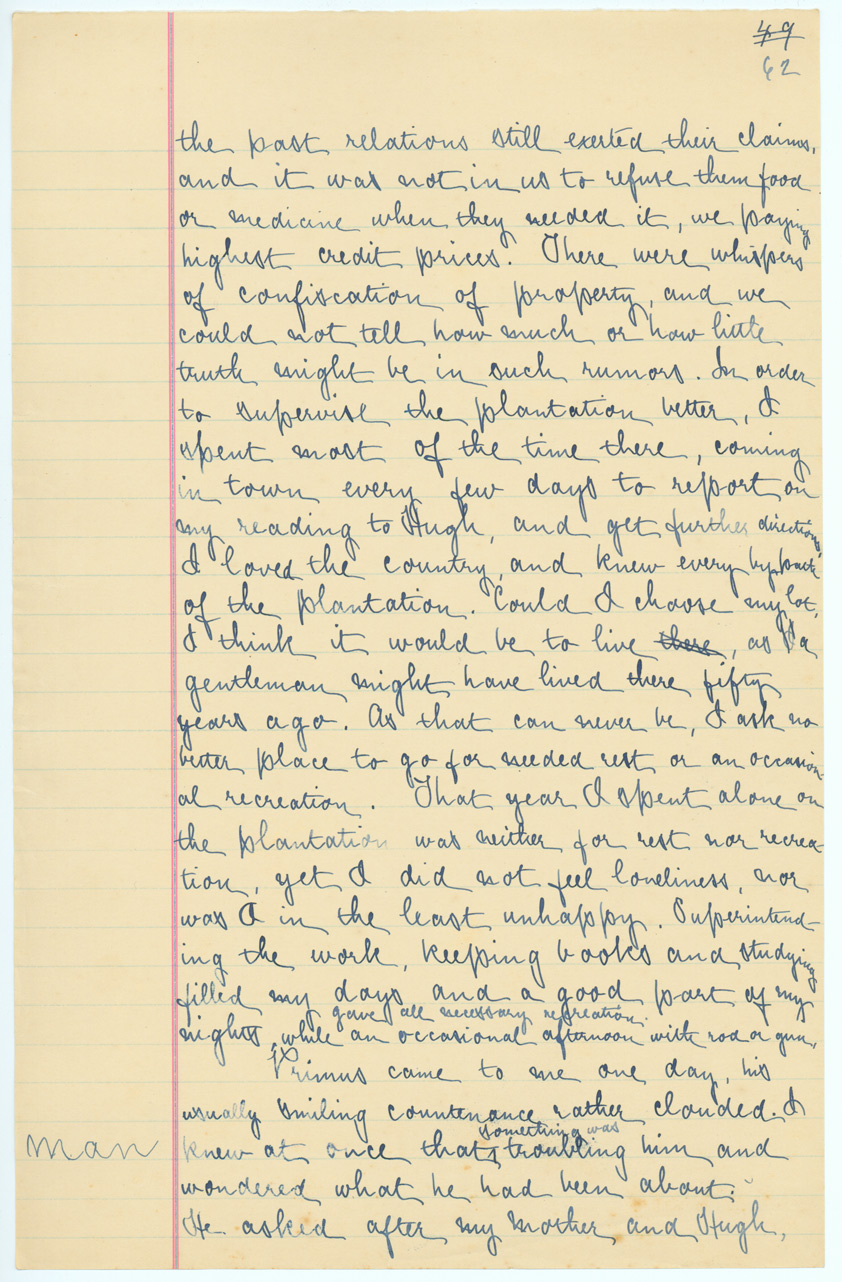 49
62
the past relations still exerted their claims,
and it was not in us to refuse them food
or medicine when they needed it, we paying
highest credit prices. There were whispers
of confiscation of property, and we
could not tell how much or how little
truth might be in such rumors. In order
to supervise the plantation better, I
spent most of the time there, coming
in town every few days to report on
my reading to Hugh, and get further directions.
I loved the country, and knew every by path
of the plantation. Could I choose my lot,
I think it would be to live there, as a
gentleman might have lived there fifty
years ago. As that can never be, I ask no
better place to go for needed rest or an occasion-
al recreation. That year I spent alone on
the plantation was neither for rest nor recrea-
tion, yet I did not feel loneliness, nor
was I in the least unhappy. Superintend-
ing the work, keeping books and studying
filled my days and a good part of my
gave all necessary recreation.
nights, while an occasional afternoon with rod or gun,
Primus came to me one day, his
usually smiling countenance rather clouded. I
something was
man knew at once that troubling him and
wondered what he had been about.
He asked after my mother and Hugh,